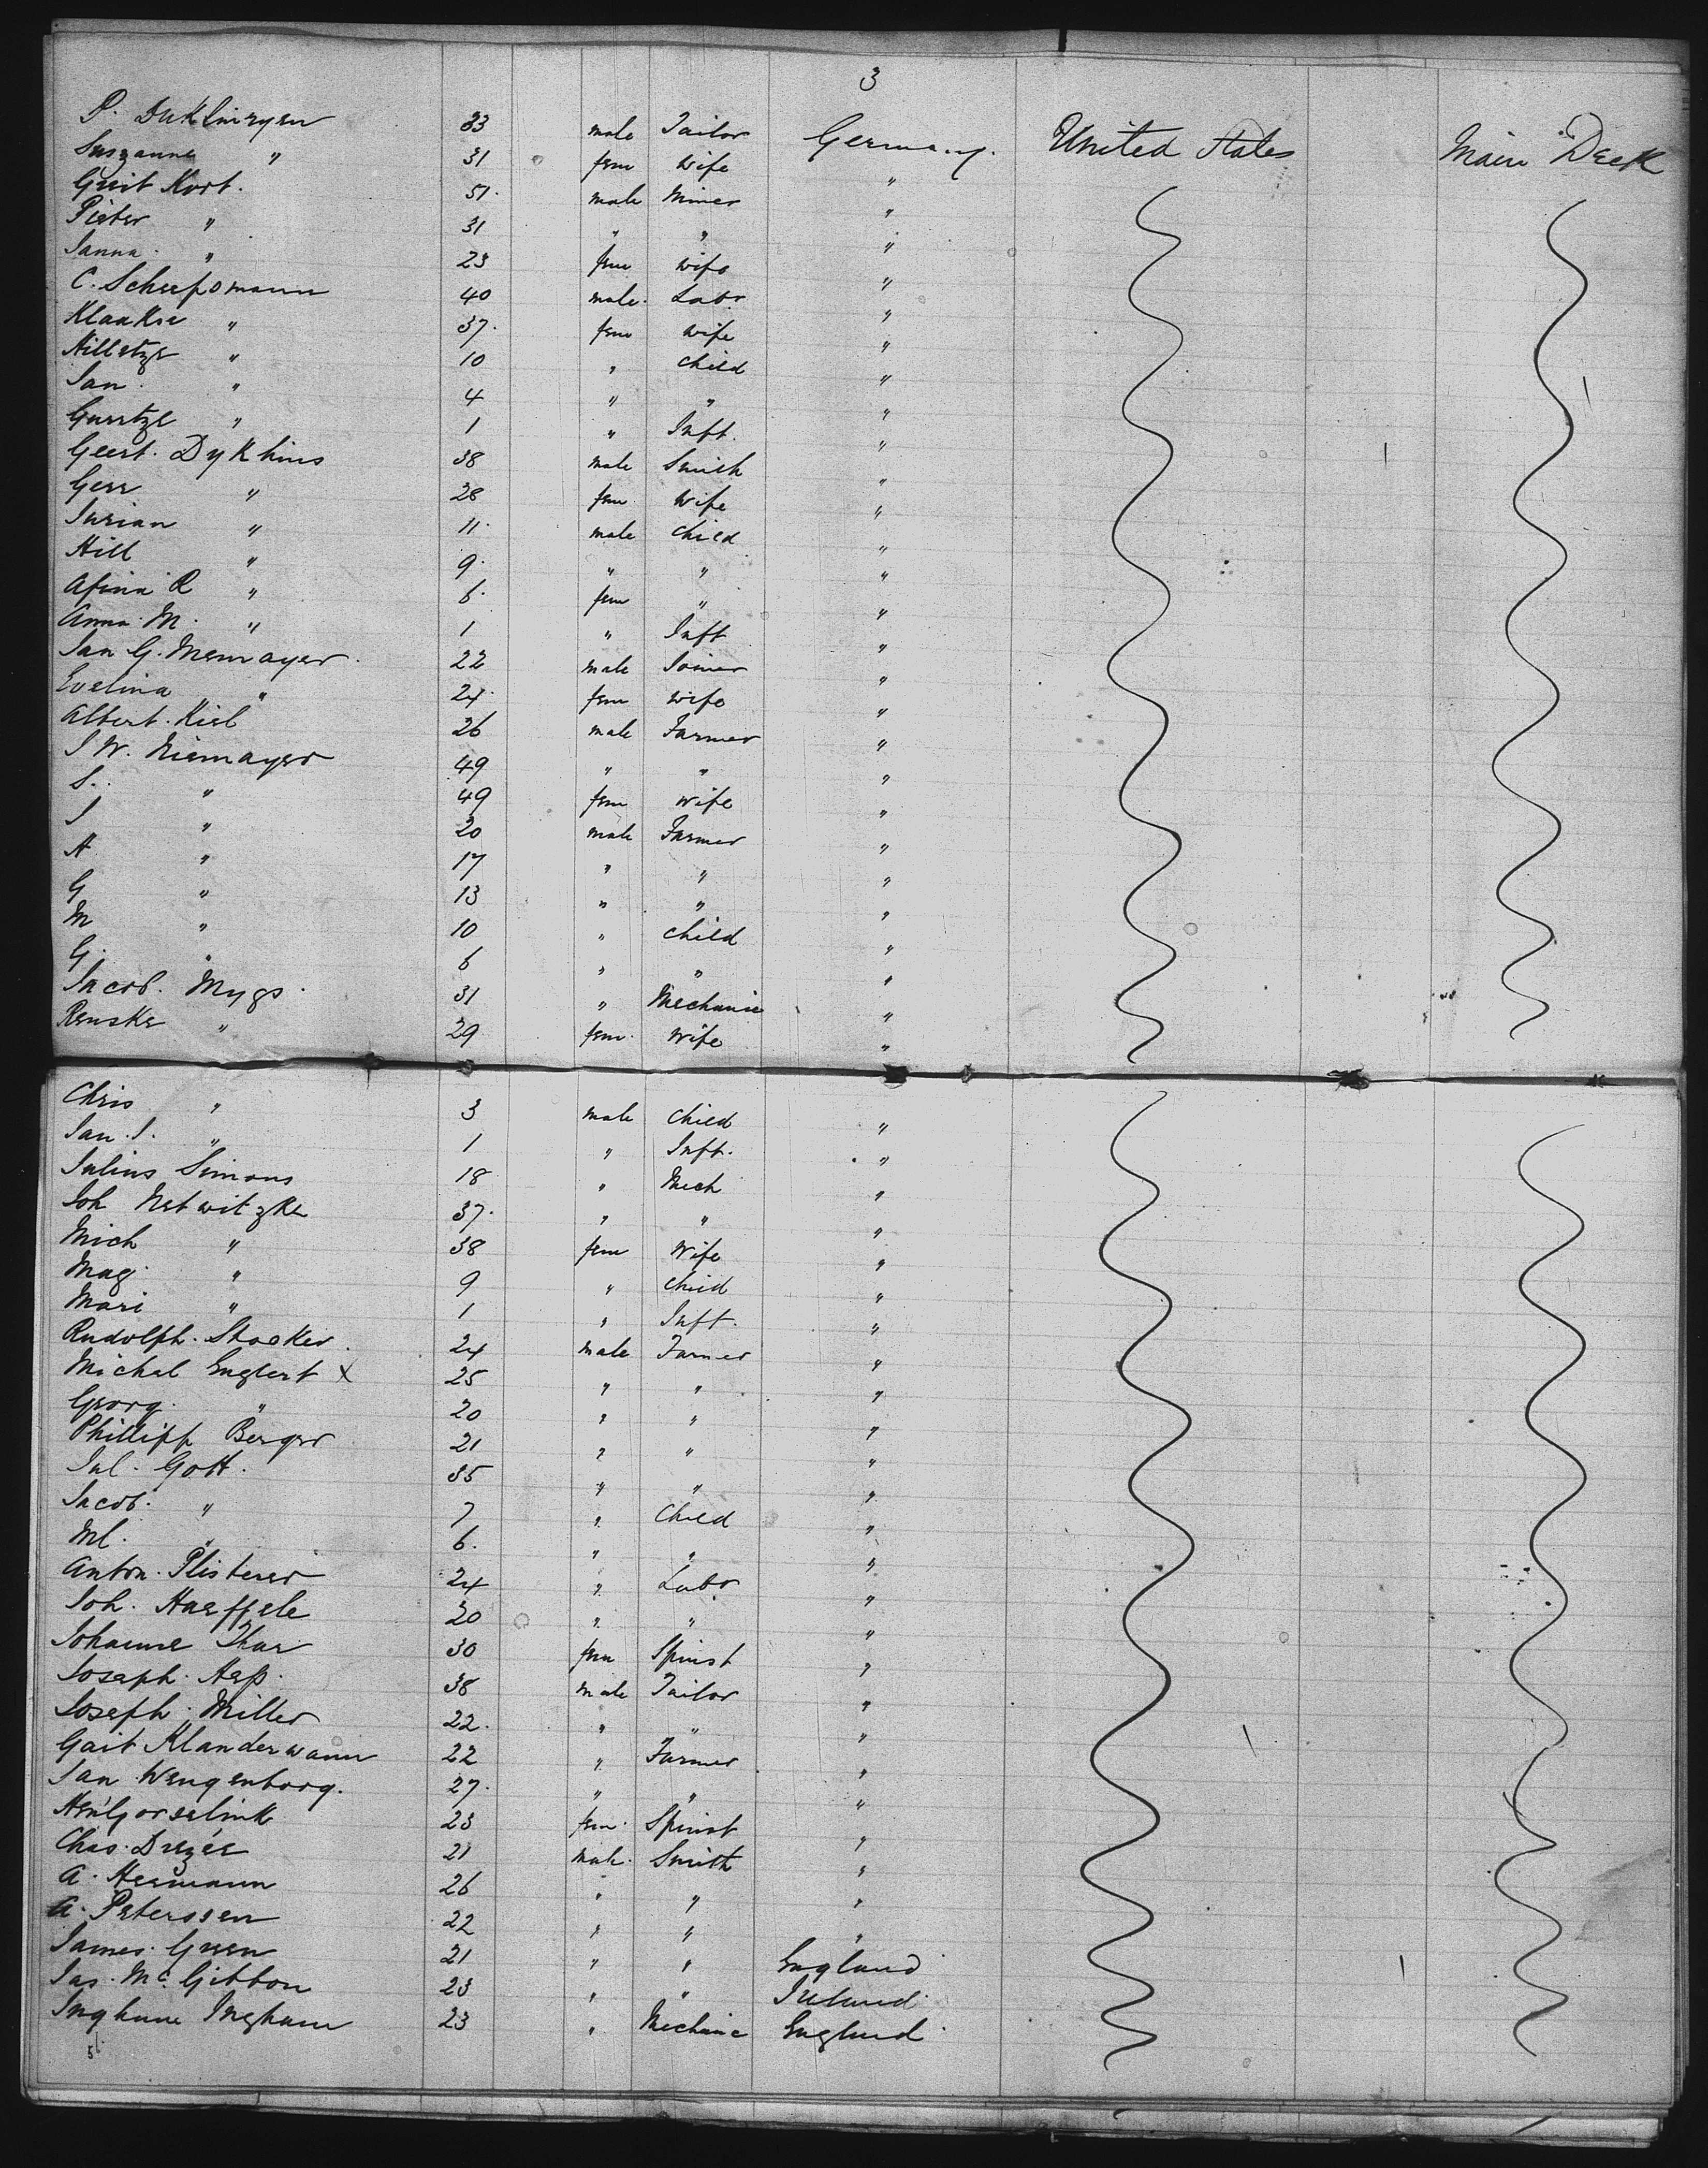 3
P. Duklmeyen 33 male Tailor Germany. United States Main Deck
Suszanne " 31 fem Wife "
Gerit Kort. 51 male Miner "
Pieter " 31 " " "
Janna " 23 fem wife "
C. Scheepsmann 40 male Labr "
Klaaksa " 37 fem wife "
Hilletze " 10 " child "
Jan " 4 " " "
Geertze " 1 " Inft. "
Geert. Dykhius 38 male Smith "
Gesr " 28 fem Wife "
Jurian " 11 male child "
Hill " 9 " " "
Afina R " 6 fem " "
Anna M. " 1 " Inft "
Jan G. Niemayer 22 male Joiner "
Evelina " 24 fem wife "
Albert. Kiel 26 male Farmer "
J W. Niemayer 49 " " "
S. " 49 fem wife "
J " 20 male Farmer "
H " 17 " " "
G " 13 " " "
M " 10 " child "
G. " 6 " " "
Jacob. Mygs 31 " Mechanic "
Renske " 29 fem. Wife "
Chris " 3 male child "
Jan. J. " 1 " Inft. "
Julius Simons 18 " Mech "
Joh Netwitzke 37 " " "
Mich " 38 fem Wife "
Mag " 9 " child "
Mari " 1 " Inft. "
Rudolph. Stocker 24 male Farmer "
Michal Englert X 25 " " "
Georg. " 20 " " "
Phillipp Berger 21 " " "
Jul. Gott. 35 " " "
Jacob. " 7 " Child "
Ml. " 6. " " "
Anton. Plisterer 24 " Labr "
Joh. Haeffele 20 " " "
Johanne Thar 30 fem Spinst "
Joseph. Hess. 38 male Tailor "
Joseph. Miller 22. " " "
Gait Klanderwann 22 " Farmer "
Jan Wengenborg. 27. " " "
Hen Gorselink 23 fem. Spinst "
Chas. Drezée 21 male. Smith "
A. Hermann 26 " " "
A. Peterssen 22 " " "
James. Green 21 " " England
Jas. Mc Gibbon 23 " " Ireland
Ingham Ingham 23 " Mechanic England